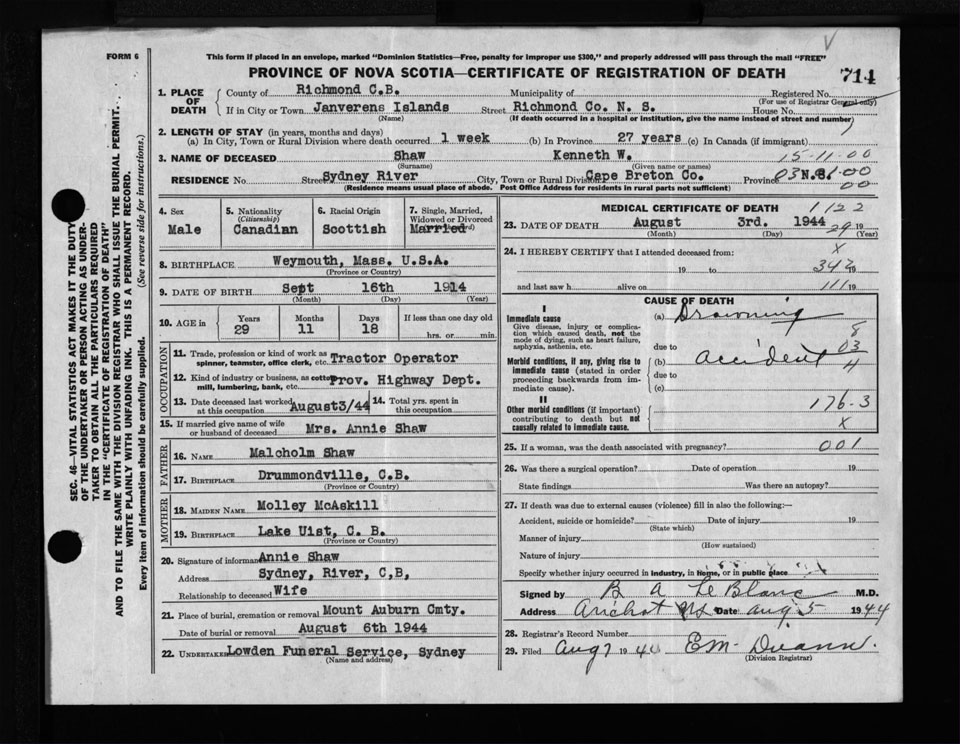 FORM 6
This form if placed in an envelope, marked "Dominion Statistics—Free, penalty for improper use $300," and properly addressed will pass through the mail "FREE"
PROVINCE OF NOVA SCOTIA—CERTIFICATE OF REGISTRATION OF DEATH
714
SEC. 46—VITAL STATISTICS ACT MAKES IT THE DUTY
OF THE UNDERTAKER OR PERSON ACTING AS UNDER-
TAKER TO OBTAIN ALL THE PARTICULARS REQUIRED
IN THE "CERTIFICATE OF REGISTRATION OF DEATH"
AND TO FILE THE SAME WITH THE DIVISION REGISTRAR WHO SHALL ISSUE THE BURIAL PERMIT.
WRITE PLAINLY WITH UNFADING INK. THIS IS A PERMANENT RECORD.
Every item of information should be carefully supplied. (See reverse side for instructions.)
1. PLACE OF DEATH
County of Richmond C.B. Municipality of Registered No.
(For use of Registrar General only)
If in City or Town Janverens Islands Street Richmond Co. N. S. House No.
(Name) (If death occurred in a hospital or institution, give the name instead of street and number)
2. LENGTH OF STAY (in years, months and days)
(a) In City, Town or Rural Division where death occurred 1 week (b) In Province 27 years (c) In Canada (if immigrant)
3. NAME OF DECEASED Shaw Kenneth W. 15-11-00
(Surname) (Given name or names)
RESIDENCE No Street Sydney River City, Town or Rural Division Cape Breton Co. Province N.S.
(Residence means usual place of abode. Post Office Address for residents in rural parts not sufficient) 00
4. Sex
Male
5. Nationality
(Citizenship)
Canadian
6. Racial Origin
Scottish
7. Single, Married,
Widowed or Divorced
Married
8. BIRTHPLACE Weymouth, Mass. U.S.A.
(Province or Country)
9. DATE OF BIRTH Sept 16th 1914
(Month) (Day) (Year)
10. AGE in
Years Months Days If less than one day old
29 11 18 hrs. or min.
OCCUPATION
11. Trade, profession or kind of work as
spinner, teamster, office clerk, etc. Tractor Operator
12. Kind of industry or business, as cotton
mill, lumbering, bank, etc. Prov. Highway Dept.
13. Date deceased last worked
at this occupation August3/44
14. Total yrs. spent in
this occupation
15. If married give name of wife
or husband of deceased Mrs. Annie Shaw
FATHER
16. NAME Malcholm Shaw
17. BIRTHPLACE Drummondville, C.B.
(Province or Country)
MOTHER
18. MAIDEN NAME Molley McAskill
19. BIRTHPLACE Lake Uist, C. B.
(Province or Country)
20. Signature of informant Annie Shaw
Address Sydney, River, C,B,
Relationship to deceased Wife
21. Place of burial, cremation or removal Mount Auburn Cmty.
Date of burial or removal August 6th 1944
22. UNDERTAKER Lowden Funeral Service, Sydney
(Name and address)
MEDICAL CERTIFICATE OF DEATH 1122
23. DATE OF DEATH August 3rd. 1944
29 19
(Month) (Day) (Year)
24. I HEREBY CERTIFY that I attended deceased from: X
19 to 342 19
and last saw h alive on 111 19
CAUSE OF DEATH
I
Immediate cause (a) Drowning
Give disease, injury or complica-
tion which caused death, not the
mode of dying, such as heart failure,
asphyxia, asthenia, etc. 8
due to 03
Morbid conditions, if any, giving rise to
immediate cause (stated in order
proceeding backwards from im-
mediate cause). (b) accident 4
due to
(c)
II
Other morbid conditions (if important)
contributing to death but not
causally related to immediate cause. 176-3
X
25. If a woman, was the death associated with pregnancy? 001
26. Was there a surgical operation? Date of operation 19
State findings Was there an autopsy?
27. If death was due to external causes (violence) fill in also the following:—
Accident, suicide or homicide? Date of injury 19
(State which)
Manner of injury
(How sustained)
Nature of injury
Specify whether injury occurred in industry, in home, or in public place
Signed by B A LeBlanc M.D.
Address Arichat NS Date aug 5 1944
28. Registrar's Record Number
29. Filed Aug 7 1944 EM
(Division Registrar)